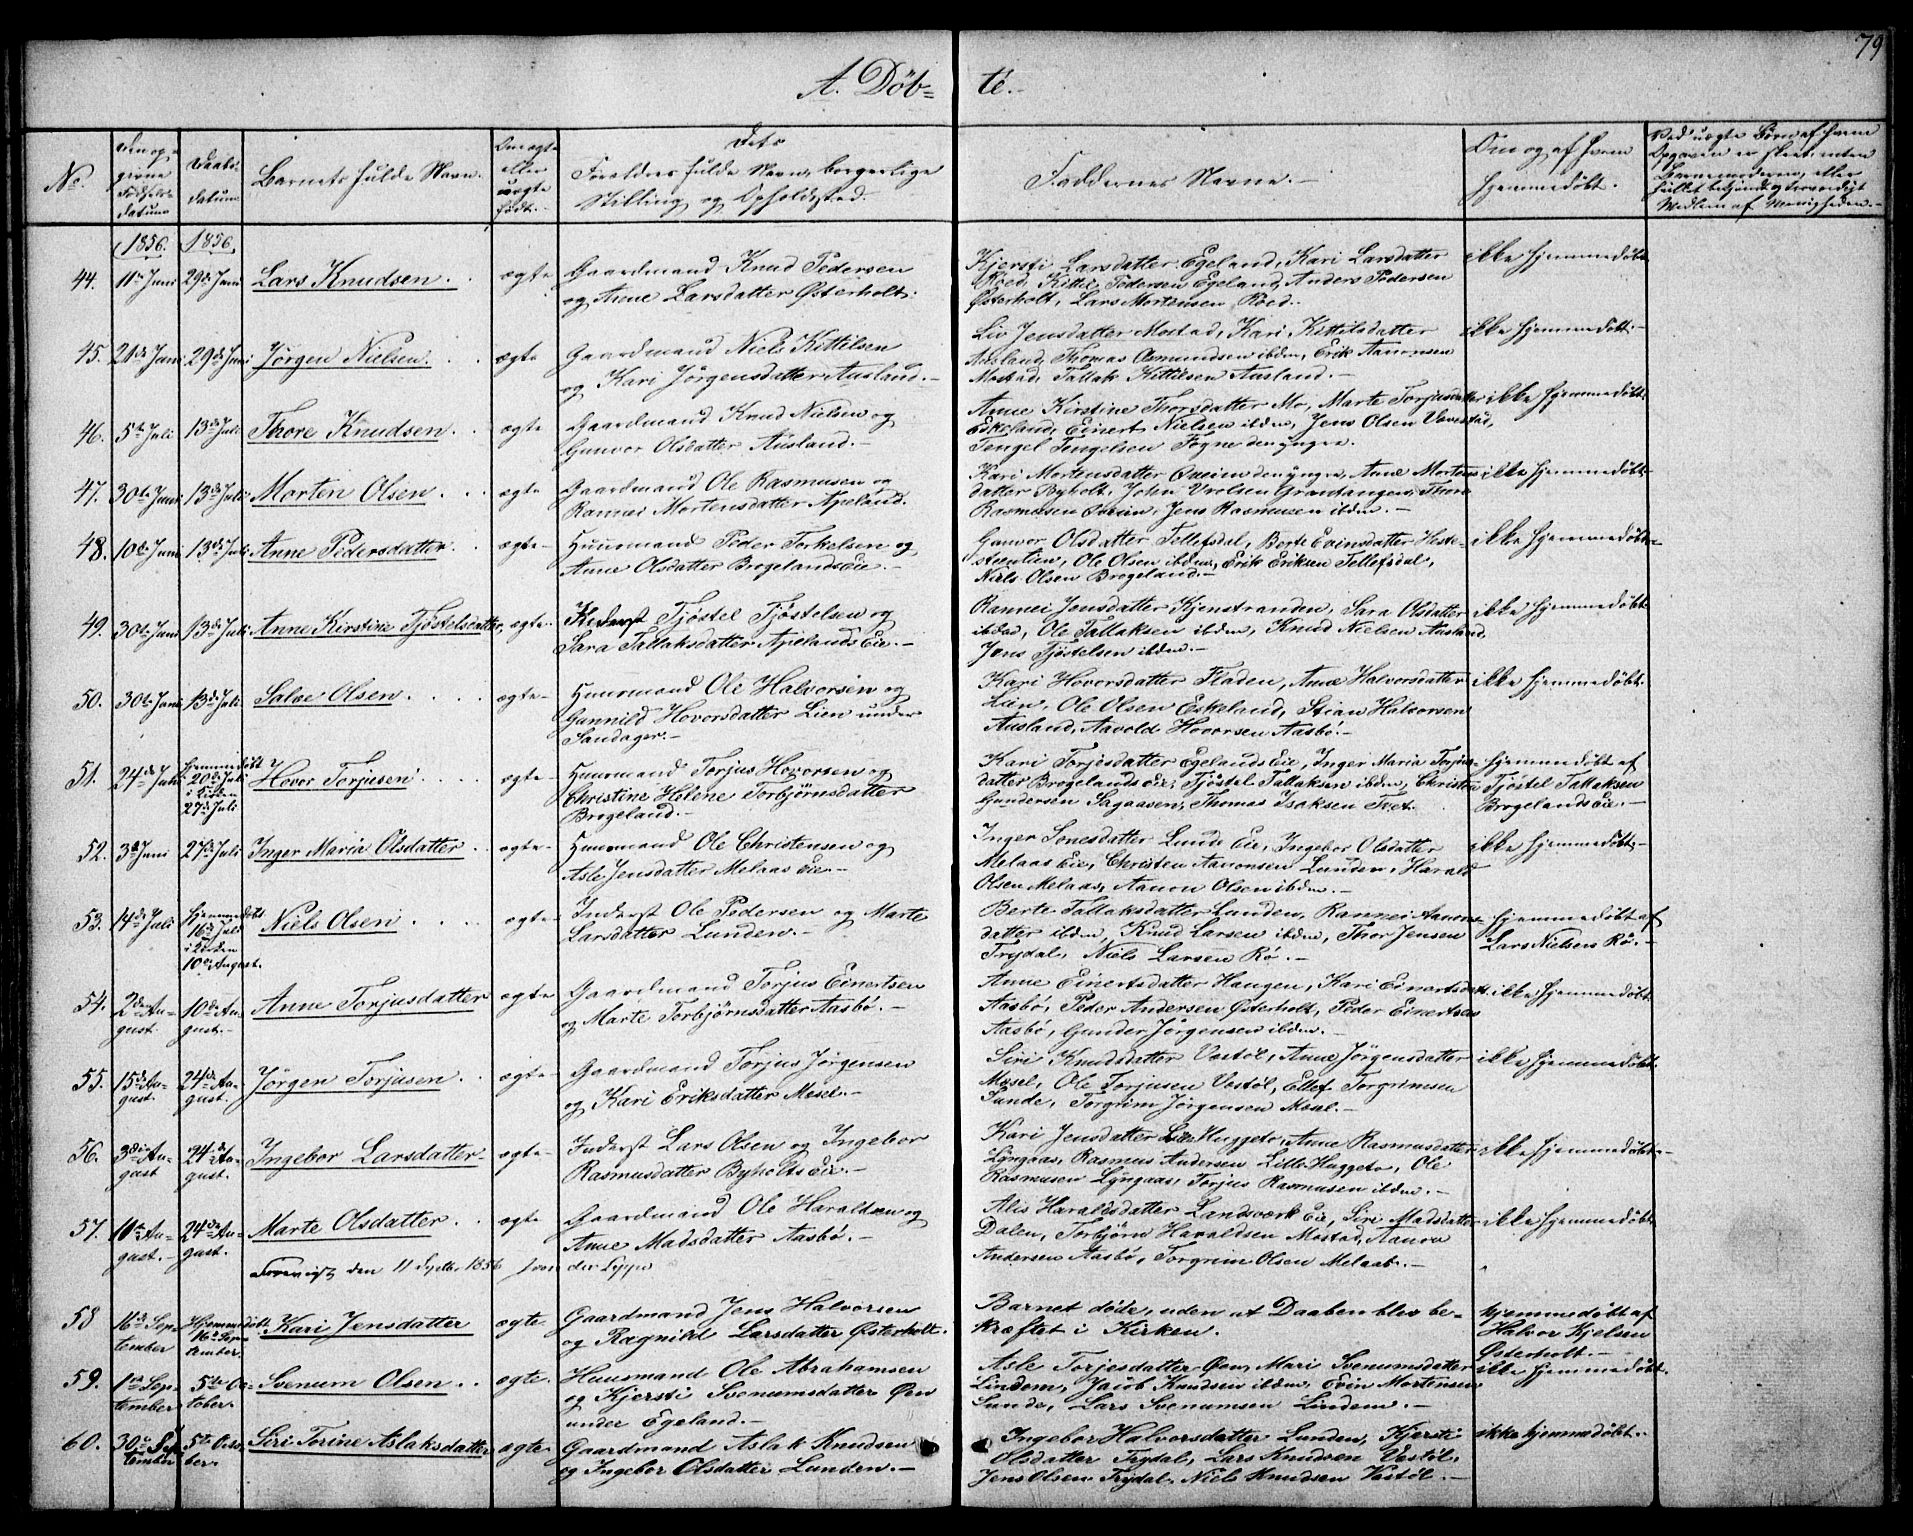 79
A. Døb=
te.
No.
Den op=
givne
Fødsels=
datum
Daabs=
datum
Barnets fulde Navn.
Om ægte
eller
uægte
født.
Dets
Forældres fulde Navn, borgerlige
Stilling og Opholdssted.
Faddernes Navne.
Om og af hvem
hjemmedøbt.
Ved uægte Børn af hvem
Opgaven er skeet, enten
Barnemoderen, eller
hullet bekjendt og troværdigt
Medlem af Menigheden.
1856. 1856.
44. 11te Juni 29de Juni Lars Knudsen. ægte Gaardmand Knud Pedersen
og Anne Larsdatter Østerholt.
Kjersti Larsdatter Egeland, Kari Larsdatter
Röed, Kittil Pedersen Egeland, Anders Pedersen
Østerholt, Lars Mortensen Röed.
ikke hjemmedøbt
45. 21de Juni 29de Juni Jørgen Nielsen. ægte Gaardmand Niels Kittilsen
og Kari Jörgensdatter Ausland.
Liv Jensdatter Mostad, Kari Kittilsdatter
Ausland, Thomas Osmundsen ibdm, Erik Aanonsen
Mostad, Tallak Kittilsen Ausland.
ikke hjemmedøbt.
46. 5te Juli 13de Juli Thore Knudsen. ægte Gaardmand Knud Nielsen og
Gunvor Olsdatter Ausland.
Anne Kirstine Thorsdatter Mo, Marte Torjusdatter
Eskeland, Einert Nielsen ibdm, Jens Olsen Vævestad,
Tengel Tengelsen Fogne den yngre.
ikke hjemmedøbt.
47. 30te Juni 13de Juli Morten Olsen. ægte Gaardmand Ole Rasmusen og
Rannei Mortensdatter Apeland.
Kari Mortensdatter Qveim den yngre, Anne Mortens
datter Byholt, John Vrolsen Grantangen, Thore
Rasmusen Qveim, Jens Rasmusen ibdm.
ikke hjemmedøbt
48. 10de Juni 13de Juli Anne Pedersdatter. ægte Huusmand Peder Terkelsen og
Anne Olsdatter Brogelands Eie.
Gunvor Olsdatter Tellefsdal, Berte Evindsdatter Heste=
steenlien, Ole Olsen ibdm, Erik Eriksen Tellefsdal,
Niels Olsen Brogeland.
ikke hjemmedøbt
49. 30te Juni 13de Juli Anne Kirstine Tjøstelsdatter, ægte Inderst Tjøstel Tjøstelsen og
Sara Tallaksdatter Apelands Eie.
Rannei Jensdatter Kjenstranden, Sara Olsdatter
ibdm, Ole Tallaksen ibdm, Knud Nielsen Ausland,
Jens Tjøstelsen ibdm.
ikke hjemmedøbt.
50. 30te Juni 13de Juli Salve Olsen. ægte Huusmand Ole Halvorsen og
Gunnild Hovorsdatter Lien under
Sandager.
Kari Hovorsdatter Fladen, Anne Halvorsdatter
Lien, Ole Olsen Eskeland, Stian Halvorsen
Ausland, Aavold Hovorsen Aasbö.
ikke hjemmedøbt.
51. 24de Juni Hjemmedøbt
20de Juli
i Kirken
27de Juli Hovor Torjusen. ægte Huusmand Torjus Hovorsen og
Christine Helene Torbjørnsdatter
Brogeland.
Kari Torjesdatter Egelands Eie, Inger Maria Torjus=
datter Brogelands Eie, Tjøstel Tallaksen ibdm, Christen
Gundersen Sagaasen, Thomas Isaksen Tvet.
hjemmedøbt af
Tjøstel Tallaksen
Brogelands Eie.
52. 3de Juni 27de Juli Inger Maria Olsdatter. ægte Huusmand Ole Christensen og
Asle Jensdatter Melaas Eie.
Inger Sonesdatter Lunde Eie, Ingebor Olsdatter
Melaas Eie, Christen Aanonsen Lunden, Harald
Olsen Melaas, Aanon Olsen ibdm.
ikke hjemmedøbt.
53. 14de Juli hjemmedøbt
16de Juli
i Kirken
10de August. Niels Olsen. ægte Inderst Ole Pedersen og Marte
Larsdatter Lunden.
Berte Tallaksdatter Lunden, Rannei Aanons=
datter ibdm, Knud Larsen ibdm, Thor Jensen
Trydal, Niels Larsen Rø.
hjemmedøbt af
Lars Nielsen Rø.
54. 2den Au=
gust. 10de Au=
gust. Anne Torjusdatter ægte Gaardmand Torjus Einertsen
og Marte Torbjørnsdatter Aasbö.
Anne Einertsdatter Haugen, Kari Einertsdatt.
Aasbö, Peder Andersen Østerholt, Peder Einertsen
Aasbö, Gunder Jørgensen ibdm.
ikke hjemmedøbt
55. 15de Au=
gust. 24de Au=
gust. Jørgen Torjusen. ægte Gaardmand Torjus Jörgensen
og Kari Eriksdatter Mesel.
Siri Knudsdatter Vestöl, Anne Jörgensdatter
Mesel, Ole Torjusen Vestöl, Ellef Torgrimsen
Sunde, Torgrim Jörgensen Mesel.
ikke hjemmedøbt.
56. 3de Au=
gust 24de Au=
gust. Ingebor Larsdatter ægte Inderst Lars Olsen og Ingebor
Rasmusdatter Byholts Eie.
Kari Jensdatter Lille Huggeto, Anne Rasmusdatter
Lyngaas, Rasmus Andersen Lille Huggeto, Ole
Rasmusen Lyngaas, Torjus Rasmusen ibdm.
ikke hjemmedøbt.
57. 10de Au=
gust. 24de Au=
gust. Marte Olsdatter. ægte Gaardmand Ole Haraldsen og
Anne Madsdatter Aasbö.
Alis Haraldsdatter Landværk Eie, Siri Madsdatter
Dalen, Torbjørn Haraldsen Mostad, Aanon
Andersen Aasbö, Torgrim Olsen Melaas.
ikke hjemmedøbt
58 16de Sep=
tember Hjemmedøbt
16de Sep=
tember. Kari Jensdatter ægte. Gaardmand Jens Halvorsen
og Ragnild Larsdatter Østerholt.
Barnet døde, uden at Daaben blev be=
kræftet i Kirken.
hjemmedøbt af
Halvor Kjelsen
Østerholt.
59. 1ste Sep=
tember 5te Oc=
tober. Svenum Olsen. ægte. Huusmand Ole Abrahamsen
og Kjersti Svenumsdatter Øen
under Egeland.
Asle Torjesdatter Øen, Mari Svenumsdatter
Lindem, Jacob Knudsen ibdm, Evin Mortensen
Sunde, Lars Svenumsen Lindem.
ikke hjemmedøbt.
60. 30te Sep
tember 5te Octo=
ber. Siri Torine Aslaksdatter ægte Gaardmand Aslak Knudsen
og Ingebor Olsdatter Lunden.
Ingebor Halvorsdatter Lunden, Kjersti
Olsdatter Trydal, Lars Knudsen Vestøl,
Jens Olsen Trydal, Niels Knudsen Vestøl.
ikke hjemmedøbt.